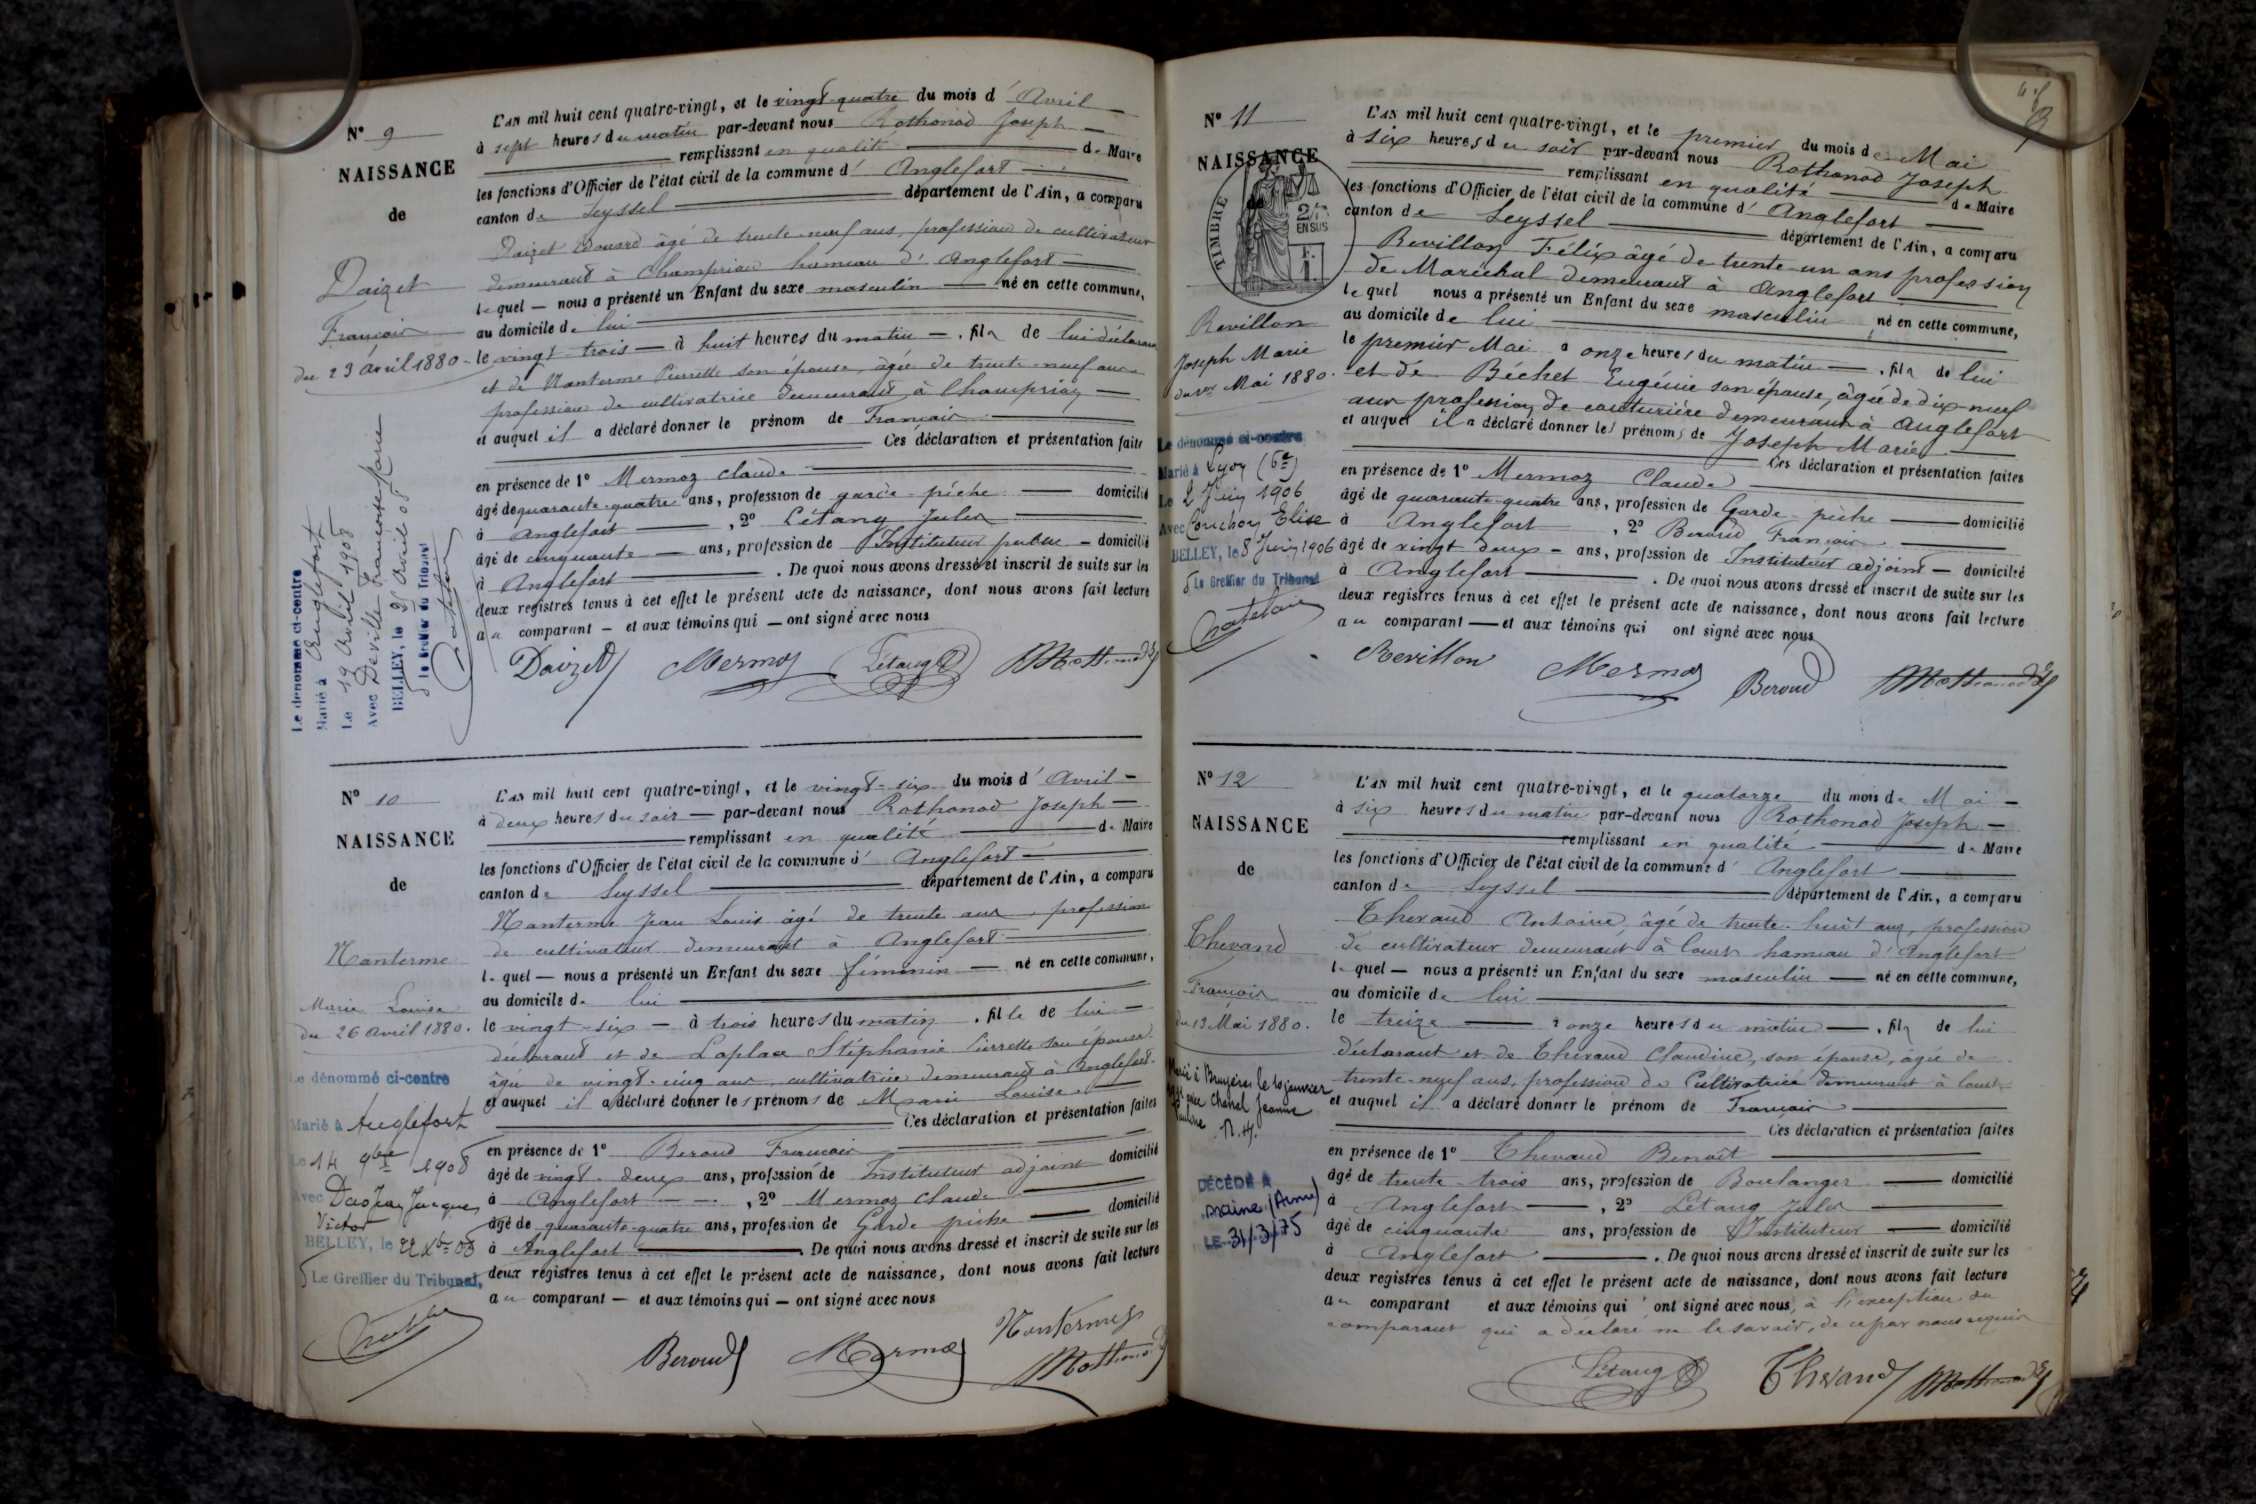 N° 9
NAISSANCE
de
Daizet
François
du 23 avril 1880.
Le dénommé ci-contre
Marié à Anglefort
Le 19 Avril 1908
Avec Deville Françoise Marie
BELLEY, le 25 Avril 08
Le Greffier du Tribunal
L'AN mil huit cent quatre-vingt, et le vingt-quatre du mois d'Avril
à sept heures du matin par-devant nous Rothonod Joseph
remplissant en qualité de Maire
les fonctions d'Officier de l'état civil de la commune d'Anglefort
canton de Seyssel département de l'Ain, a comparu
Daizet Edouard âgé de trente-neuf ans, profession de cultivateur
demeurant à Champriau hameau d'Anglefort
lequel nous a présenté un Enfant du sexe masculin né en cette commune,
au domicile de lui
le vingt-trois à huit heures du matin, fils de lui déclarant
et de Nanterme Pierrette son épouse, âgée de trente-neuf ans
profession de cultivatrice demeurant à Champriau
et auquel il a déclaré donner le prénom de François
Ces déclaration et présentation faites
en présence de 1° Mermoz Claude
âgé de quarante-quatre ans, profession de garde-pêche domicilié
à Anglefort, 2° Létang Jules
âgé de cinquante ans, profession de Instituteur public domicilié
à Anglefort. De quoi nous avons dressé et inscrit de suite sur les
deux registres tenus à cet effet le présent acte de naissance, dont nous avons fait lecture
au comparant et aux témoins qui ont signé avec nous
Daizet Mermoz Létang Rothonod
N° 10
NAISSANCE
de
Nanterme
Marie Louise
du 26 avril 1880.
Le dénommé ci-contre
Marié à Anglefort
Le 14 9bre 1908
Avec Jean Jacques
Victor
BELLEY, le 22 Xbre 08
Le Greffier du Tribunal,
L'AN mil huit cent quatre-vingt, et le vingt-six du mois d'Avril
à deux heures du soir par-devant nous Rothonod Joseph
remplissant en qualité de Maire
les fonctions d'Officier de l'état civil de la commune d'Anglefort
canton de Seyssel département de l'Ain, a comparu
Nanterme Jean Louis âgé de trente ans, profession
de cultivateur demeurant à Anglefort
lequel nous a présenté un Enfant du sexe féminin né en cette commune,
au domicile de lui
le vingt-six à trois heures du matin, fille de lui
déclarant et de Laplace Stéphanie Pierrette son épouse
âgée de vingt-cinq ans, cultivatrice demeurant à Anglefort
et auquel il a déclaré donner les prénoms de Marie Louise
Ces déclaration et présentation faites
en présence de 1° Beroud François
âgé de vingt-deux ans, profession de Instituteur adjoint domicilié
à Anglefort, 2° Mermoz Claude
âgé de quarante-quatre ans, profession de Garde pêche domicilié
à Anglefort De quoi nous avons dressé et inscrit de suite sur les
deux registres tenus à cet effet le présent acte de naissance, dont nous avons fait lecture
au comparant et aux témoins qui ont signé avec nous
Nanterme
Beroud Mermoz Rothonod
N° 11
NAISSANCE
TIMBRE
2/10 EN SUS
Revillon
Joseph Marie
du 1er Mai 1880.
Le dénommé ci-contre
Marié à Lyon (6e)
Le 2 Juin 1906
Avec Couchoy Elise
BELLEY, le 8 Juin 1906
Le Greffier du Tribunal
L'AN mil huit cent quatre-vingt, et le premier du mois de Mai
à six heures du soir par-devant nous Rothonod Joseph
remplissant en qualité de Maire
les fonctions d'Officier de l'état civil de la commune d'Anglefort
canton de Seyssel département de l'Ain, a comparu
Revillon Félix âgé de trente-un ans profession
de Maréchal demeurant à Anglefort
lequel nous a présenté un Enfant du sexe masculin né en cette commune,
au domicile de lui
le premier Mai à onze heures du matin, fils de lui
et de Béchet Eugénie son épouse, âgée de dix-neuf
ans profession de couturière demeurant à Anglefort
et auquel il a déclaré donner les prénoms de Joseph Marie
Ces déclaration et présentation faites
en présence de 1° Mermoz Claude
âgé de quarante-quatre ans, profession de Garde-pêche domicilié
à Anglefort, 2° Beroud François
âgé de vingt deux ans, profession de Instituteur adjoint domicilié
à Anglefort. De quoi nous avons dressé et inscrit de suite sur les
deux registres tenus à cet effet le présent acte de naissance, dont nous avons fait lecture
au comparant et aux témoins qui ont signé avec nous
Revillon Mermoz Beroud Rothonod
N° 12
NAISSANCE
de
Thevand
François
du 13 Mai 1880.
Marié à Bruyères le 10 janvier
avec Chanal Jeanne
DÉCÉDÉ A
LE 31/3/75
L'AN mil huit cent quatre-vingt, et le quatorze du mois de Mai
à six heures du matin par-devant nous Rothonod Joseph
remplissant en qualité de Maire
les fonctions d'Officier de l'état civil de la commune d'Anglefort
canton de Seyssel département de l'Ain, a comparu
Thevand Antoine, âgé de trente-huit ans, profession
de cultivateur demeurant à hameau d'Anglefort
lequel nous a présenté un Enfant du sexe masculin né en cette commune,
au domicile de lui
le treize à onze heures du matin, fils de lui
déclarant et de Thevand Claudine, son épouse, âgée de
trente-neuf ans, profession de Cultivatrice demeurant à
et auquel il a déclaré donner le prénom de François
Ces déclaration et présentation faites
en présence de 1° Thevand Benoît
âgé de trente-trois ans, profession de Boulanger domicilié
à Anglefort, 2° Létang Jules
âgé de cinquante ans, profession de Instituteur domicilié
à Anglefort. De quoi nous avons dressé et inscrit de suite sur les
deux registres tenus à cet effet le présent acte de naissance, dont nous avons fait lecture
au comparant et aux témoins qui ont signé avec nous, à l'exception du
comparant qui a déclaré ne le savoir, de ce par nous requis
Létang Thevand Rothonod